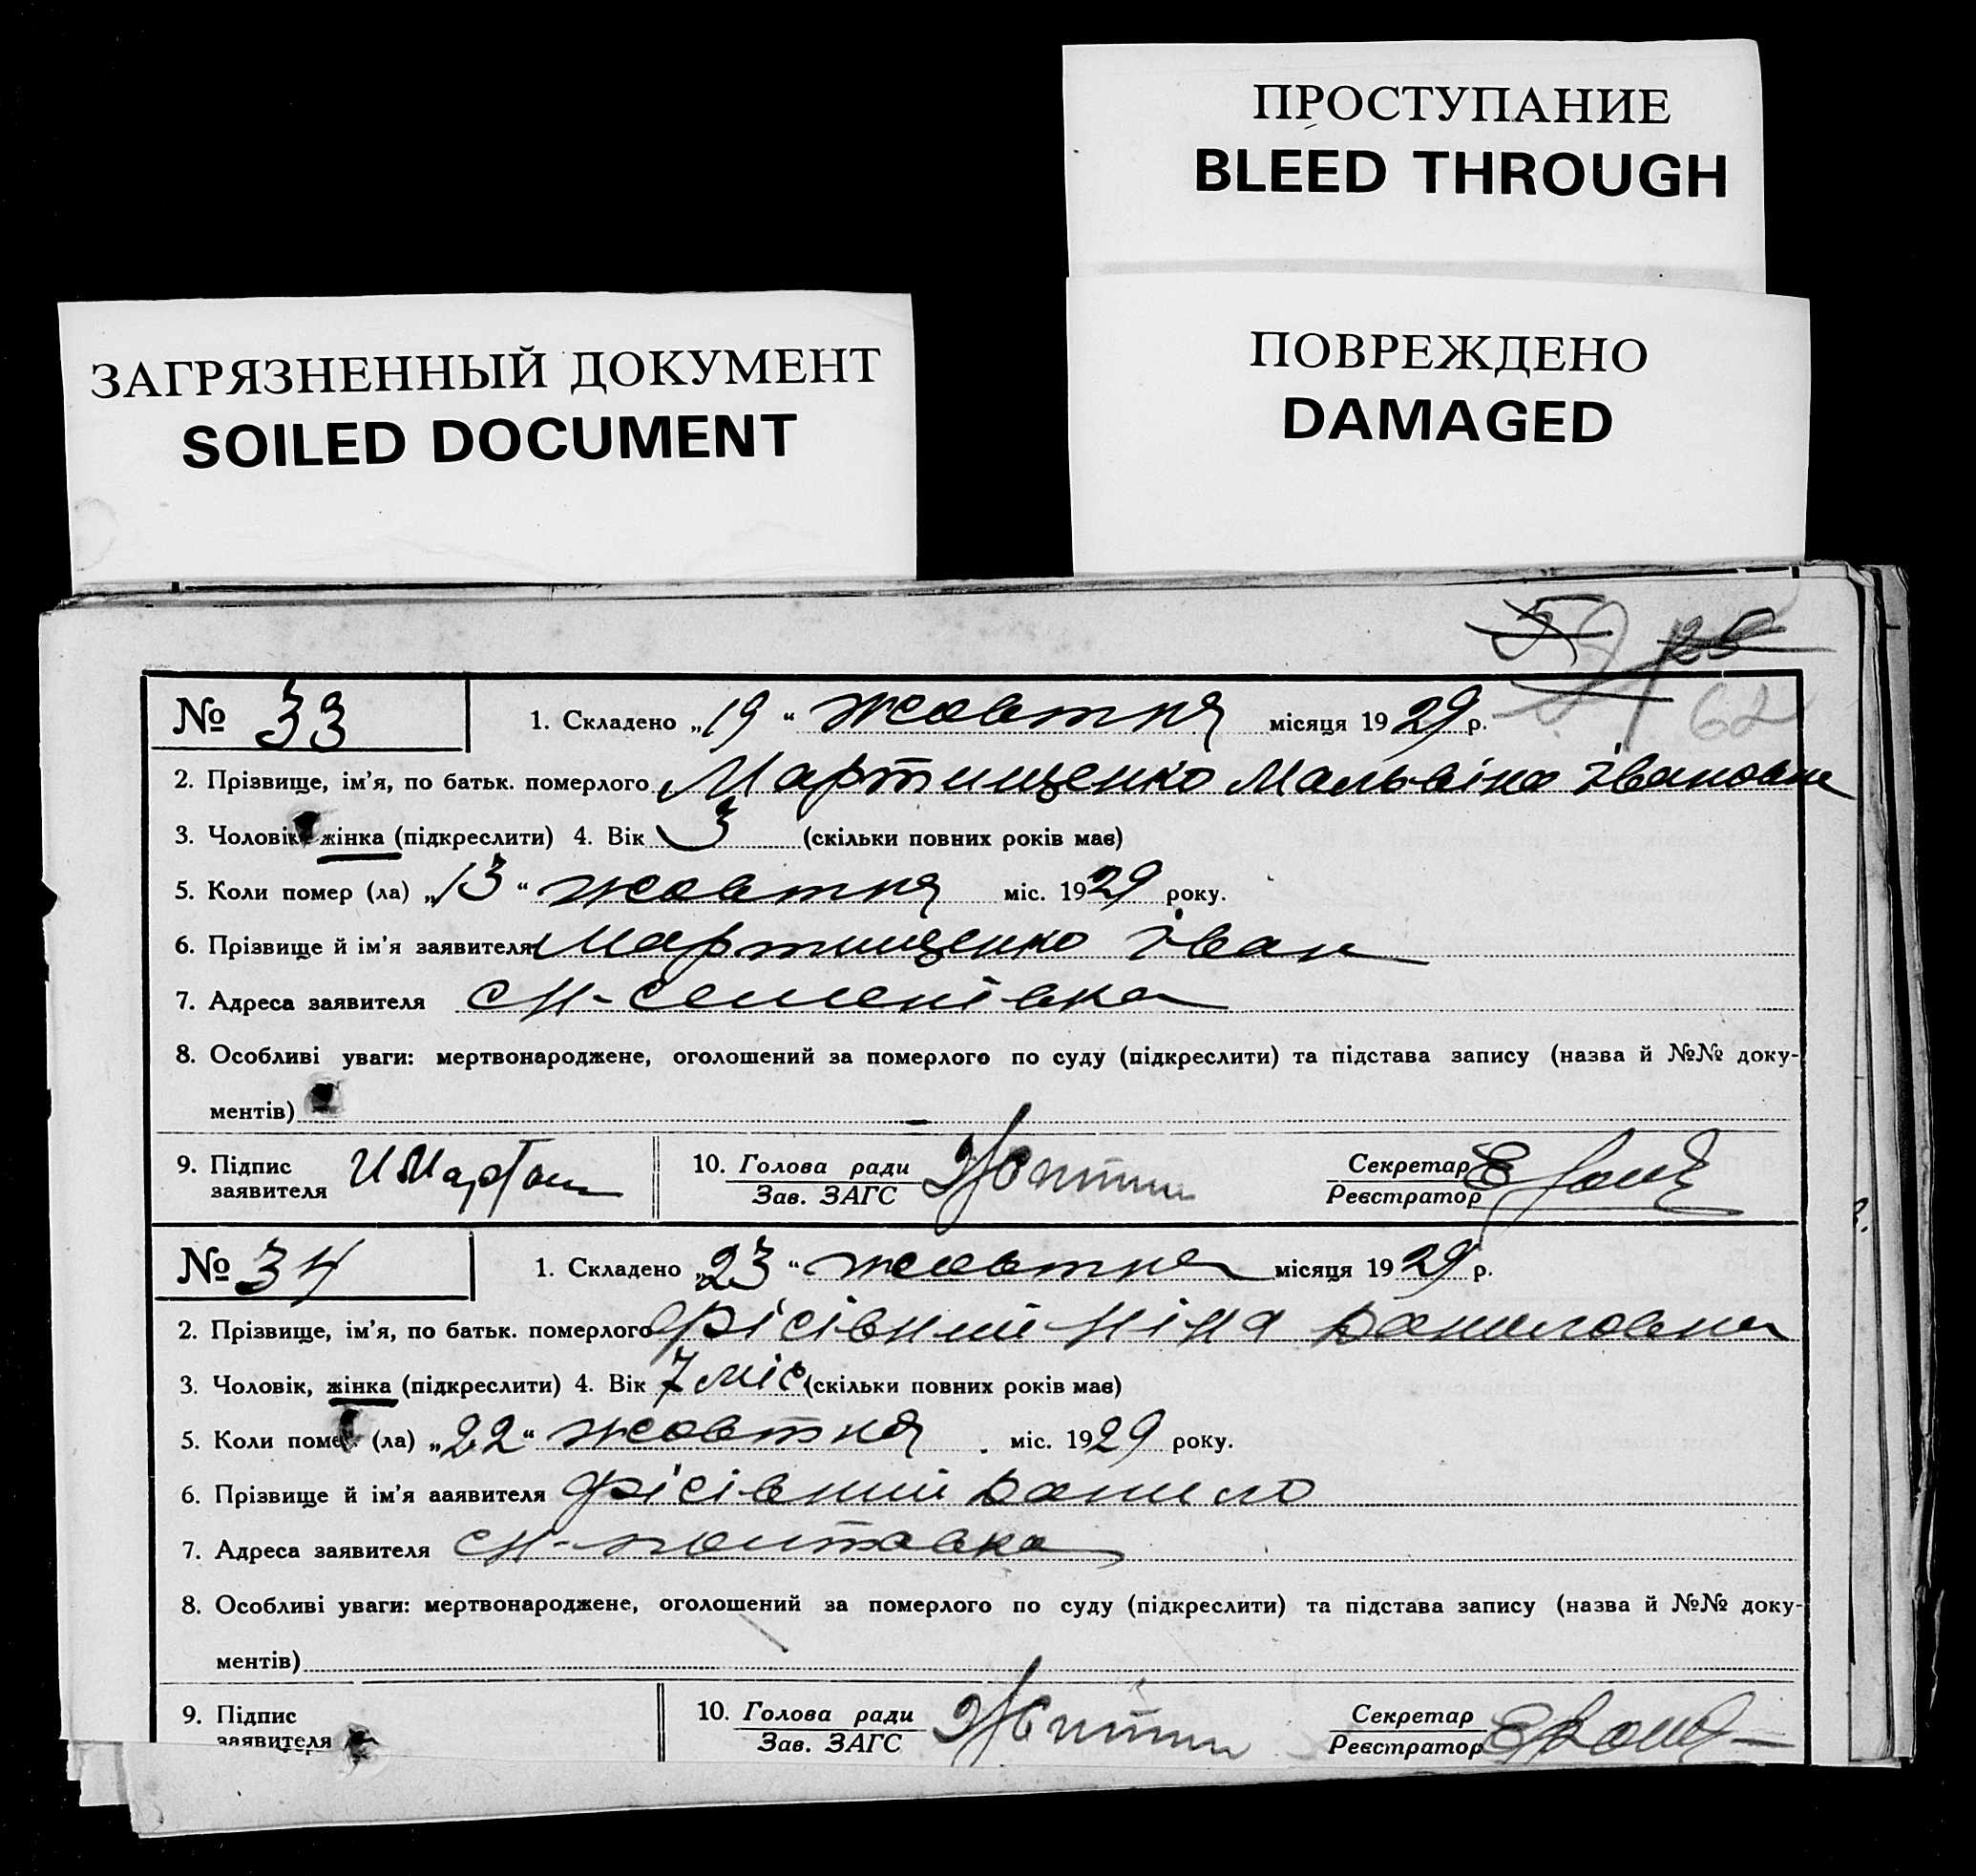 ПРОСТУПАНИЕ
BLEED THROUGH
ЗАГРЯЗНЕННЫЙ ДОКУМЕНТ
SOILED DOCUMENT
ПОВРЕЖДЕНО
DAMAGED
62
№ 33 1. Складено „19“ жовтня місяця 1929 р.
2. Прізвище, ім'я, по батьк. померлого Мартищенко Мальвіна Івановна
3. Чоловік жінка (підкреслити) 4. Вік 3 (скільки повних років має)
5. Коли помер (ла) „13“ жовтня міс. 1929 року.
6. Прізвище й ім'я заявителя Мартищенко Іван
7. Адреса заявителя Н-Семенівка
8. Особливі уваги: мертвонароджене, оголошений за померлого по суду (підкреслити) та підстава запису (назва й №№ доку-
ментів)
9. Підпис заявителя 10. Голова ради Зав. ЗАГС Секретар Реєстратор
№ 34 1. Складено „23“ жовтня місяця 1929 р.
2. Прізвище, ім'я, по батьк. померлого Фісівний Ніна Даниловна
3. Чоловік, жінка (підкреслити) 4. Вік 7 міс (скільки повних років має)
5. Коли помер (ла) „22“ жовтня міс. 1929 року.
6. Прізвище й ім'я заявителя Фісівний Данило
7. Адреса заявителя
8. Особливі уваги: мертвонароджене, оголошений за померлого по суду (підкреслити) та підстава запису (назва й №№ доку-
ментів)
9. Підпис заявителя 10. Голова ради Зав. ЗАГС Секретар Реєстратор